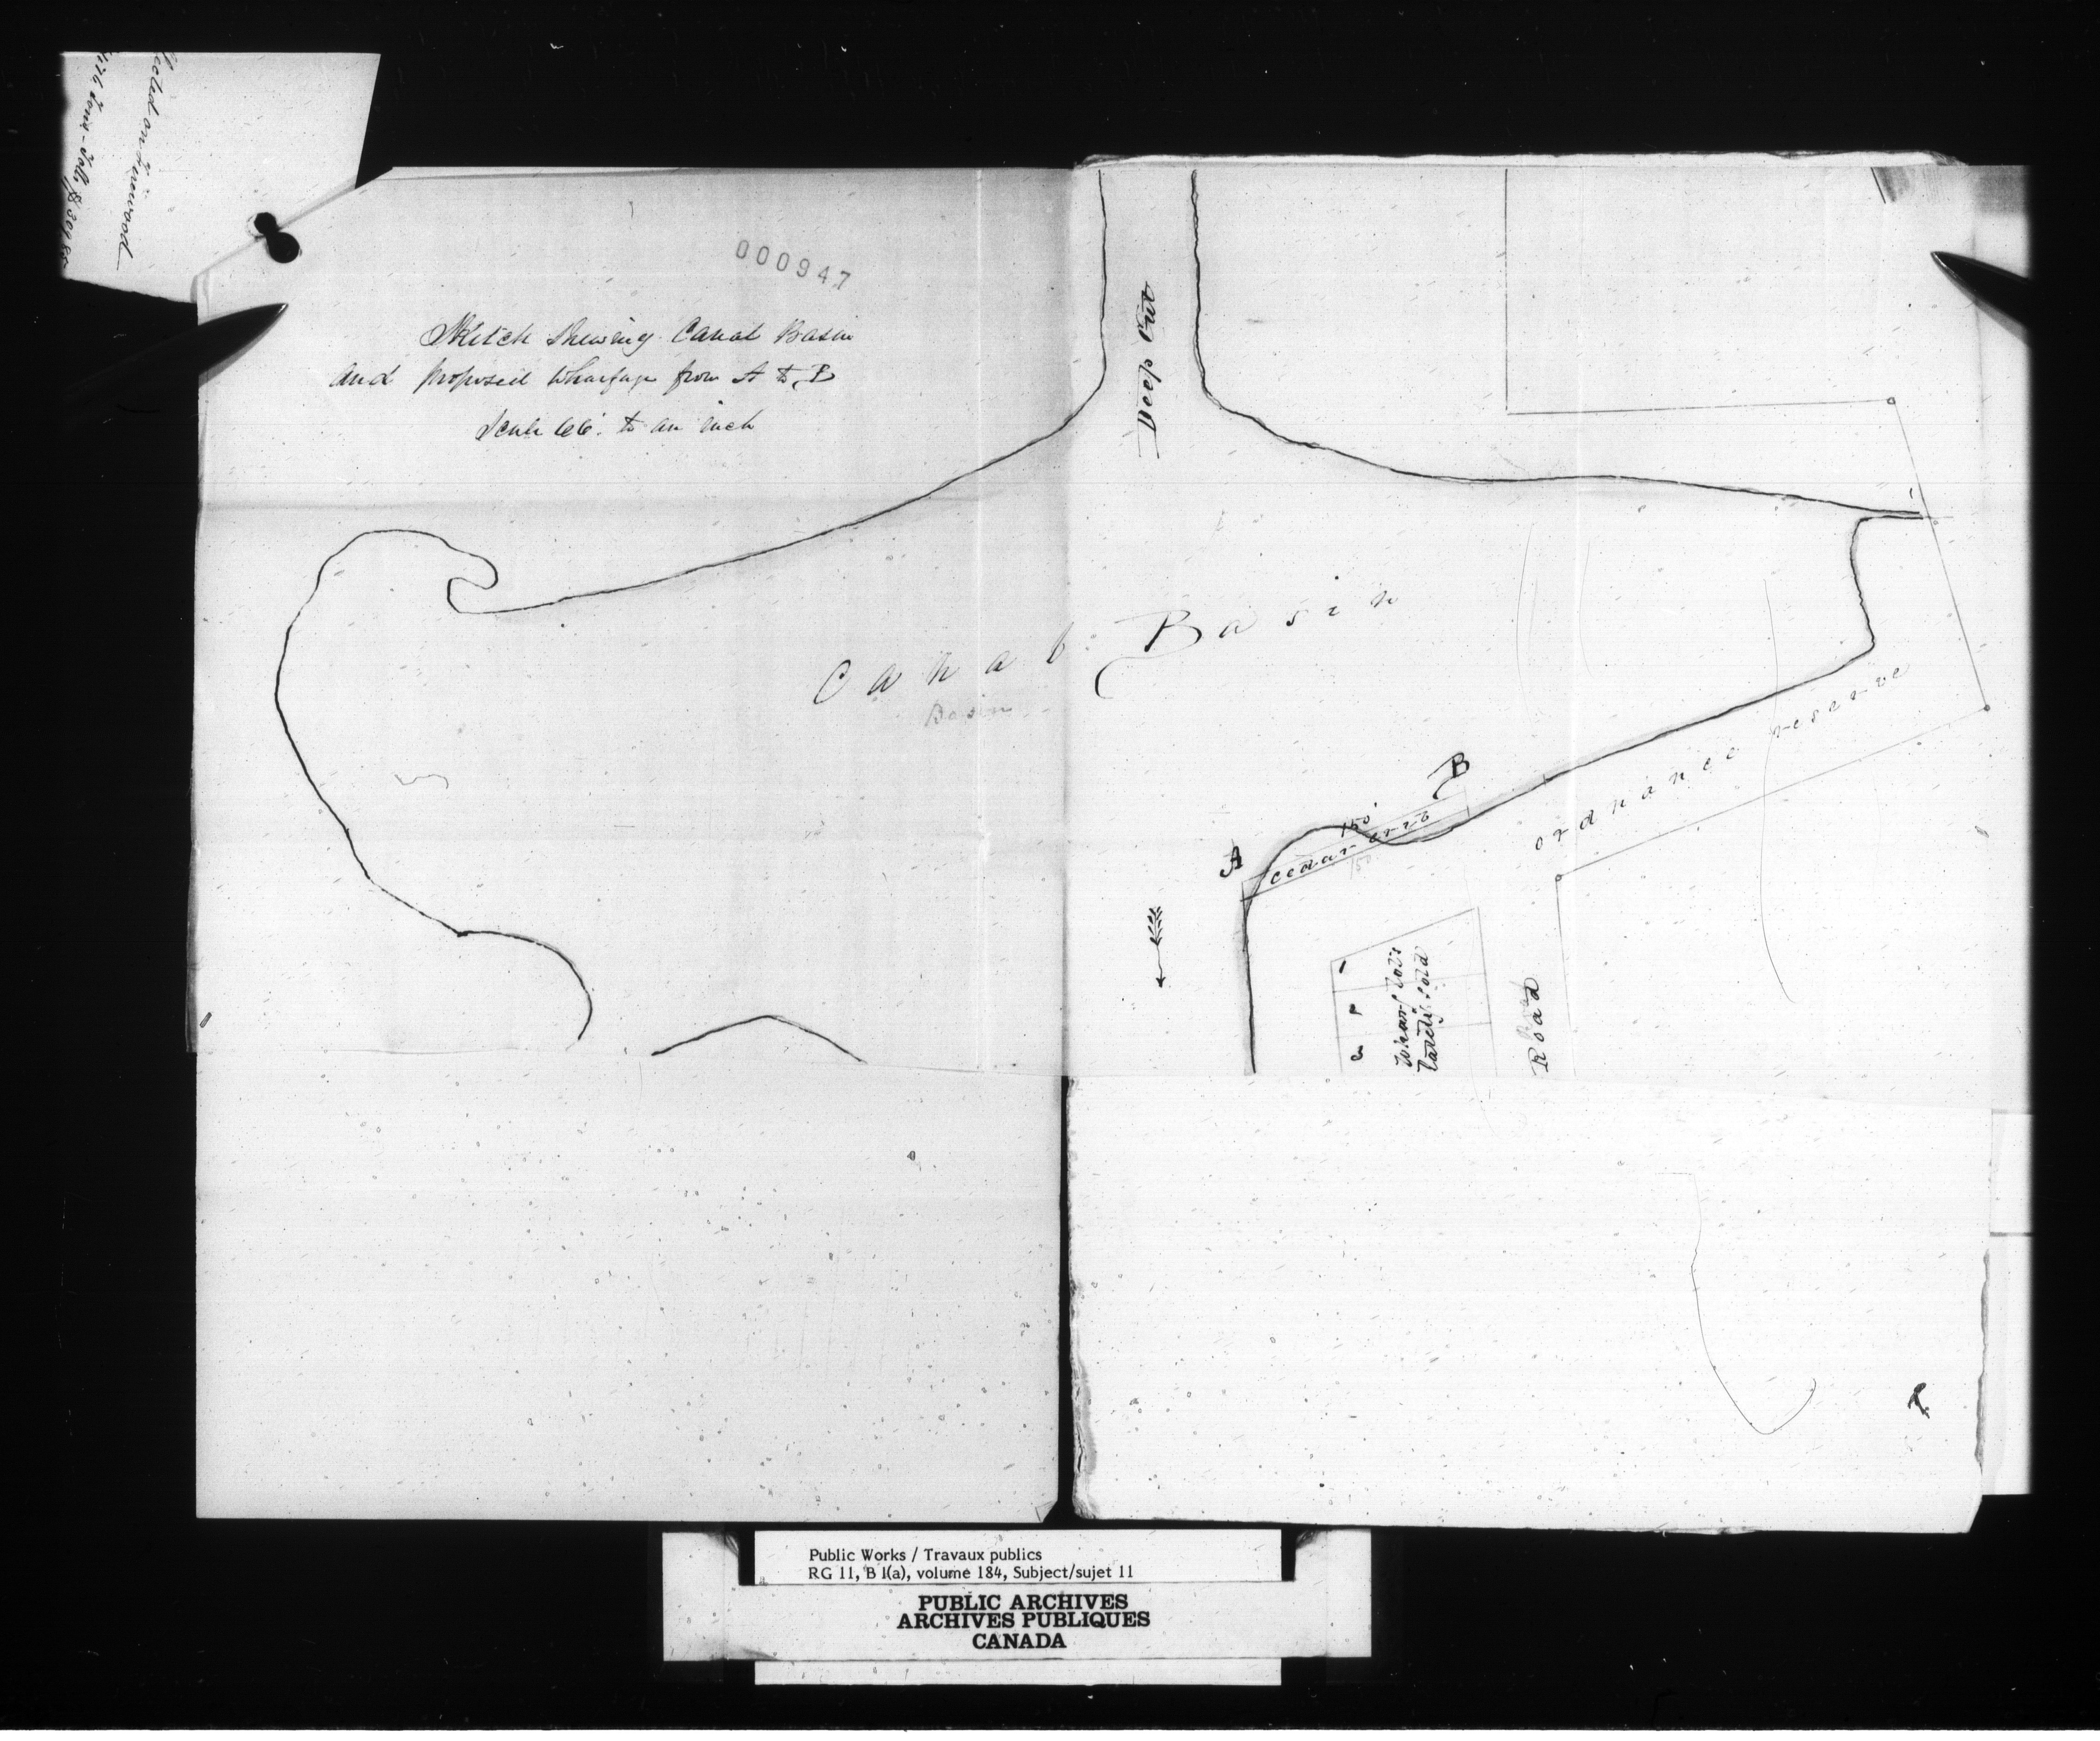 lected on Firewood
Tons - Tolls $309
000947
Sketch Shewing Canal Basin
and proposed Wharfage from A to B
Scale 66' to an inch
Deep Cut
Canal Basin
Basin
ordnance reserve
B
A
150'
cedar crib
150
1
2
3
Wharf Lots
lately sold
Road
Public Works / Travaux publics
RG 11, B 1(a), volume 184, Subject/sujet 11
PUBLIC ARCHIVES
ARCHIVES PUBLIQUES
CANADA